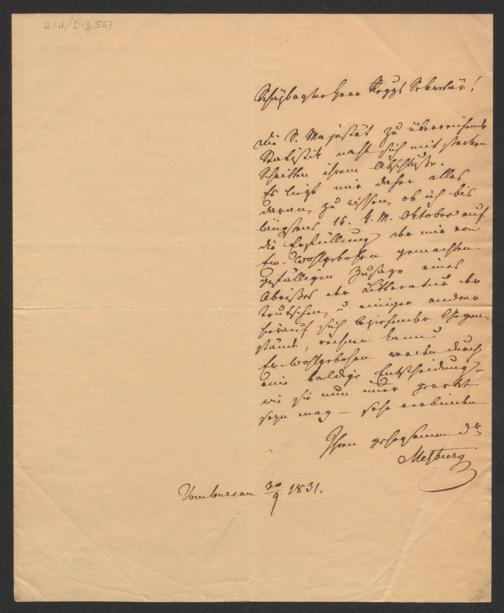 H.I.N./243.567
Schätzbarster Herr Reggs Sekretär!
Die S. Majestät zu überreichende
Statistik naht sich mit starken
Schritten ihrem Abschluße.
Es liegt mir daher alles
daran, zu wissen, ob ich bis
längstens 16. k. M. Oktober auf
die Erfüllung der mir von
Ew. Wohlgebohren gemachten
gefälligen Zusage eines
Abrißes der Litteratur der
Deutschen, u. einiger anderer
hierauf sich beziehender Gegen-
stände, rechnen kann?
Ew. Wohlgebohren werden durch
eine baldige Entscheidung,
wie sie nun immer
seyn mag – sehr verbinden
Ihren gehorsamen Dr
Metzburg
Vom Bureau 30/9 1831.